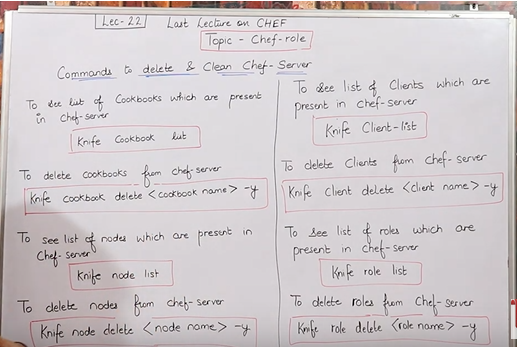 Lec-22
Last Lecture on CHEF
Topic - Chef-role
Commands to delete & Clean Chef-Server
To see list of Cookbooks which are present
in chef-server
Knife Cookbook list
To delete cookbooks from chef-server
Knife cookbook delete <cookbook name> -y
To see list of nodes which are present in
Chef-server
Knife node list
To delete nodes from chef-server
Knife node delete <node name> -y
To see list of Clients which are
present in chef-server
Knife Client-list
To delete Clients from chef-server
Knife Client delete <client name> -y
To see list of roles which are
present in chef-server
Knife role list
To delete roles from Chef-server
Knife role delete <role name> -y